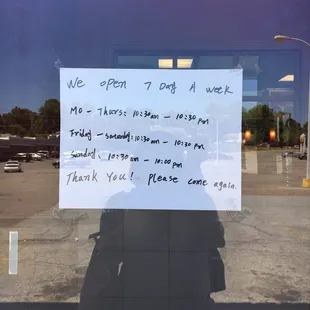 We open 7 Day A week
Mo - Thurs: 10:30 am - 10:30 pm
Friday - saturday: 10:30 am - 10:30 pm
Sunday: 10:30 am - 10:00 pm
Thank You! please come again.